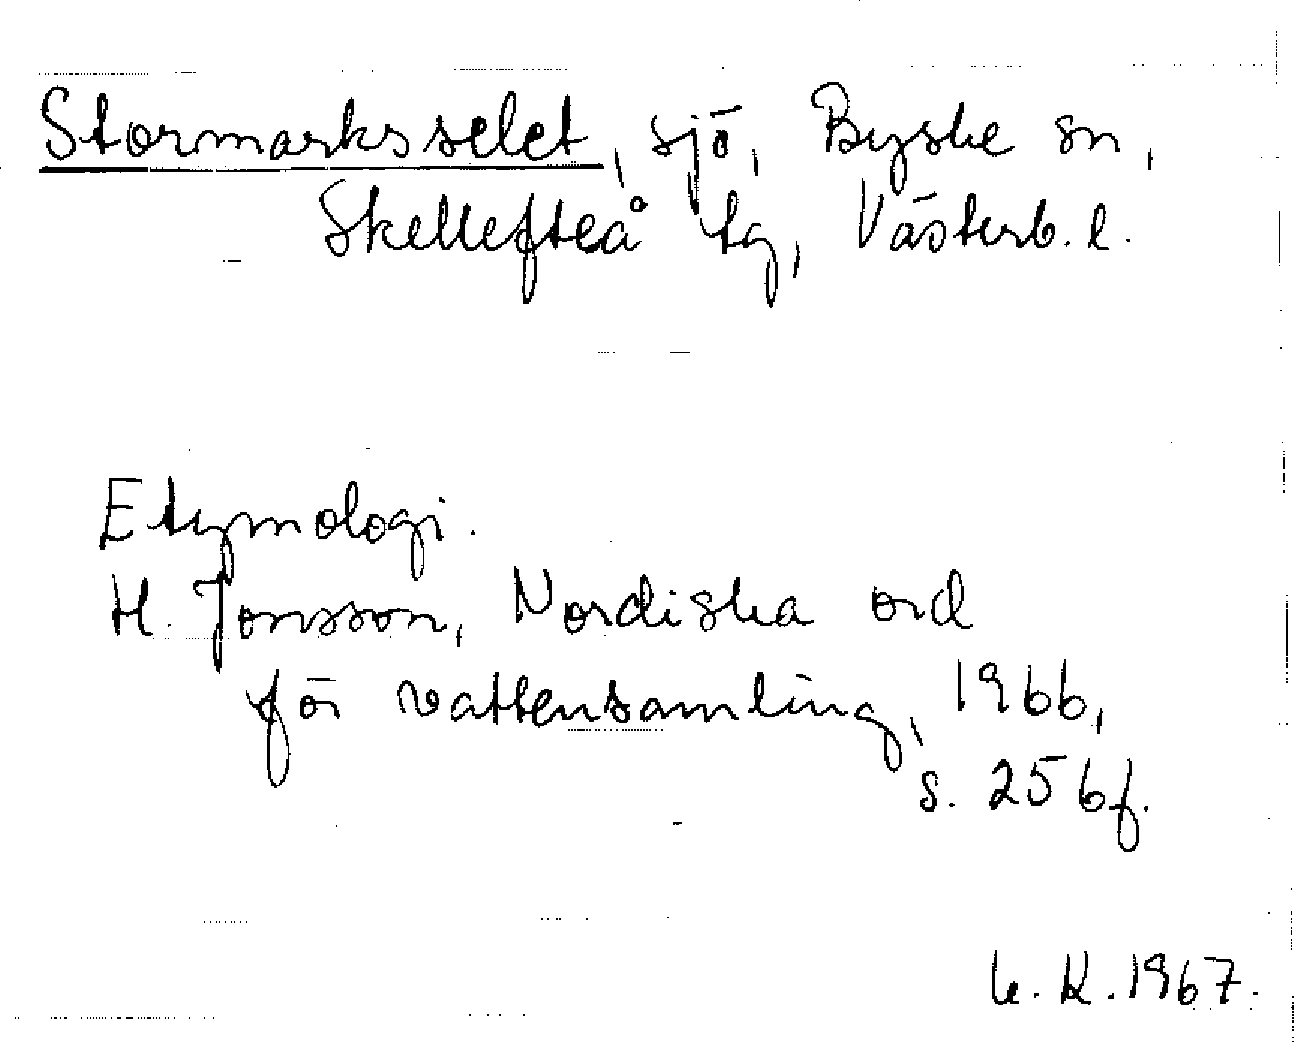 Stormarksselet, sjö, Byske sn,
Skellefteå tg, Västerb. l.
Etymologi.
H. Jonsson, Nordiska ord
för vattensamling, 1966,
s. 256f.
K. 1967.